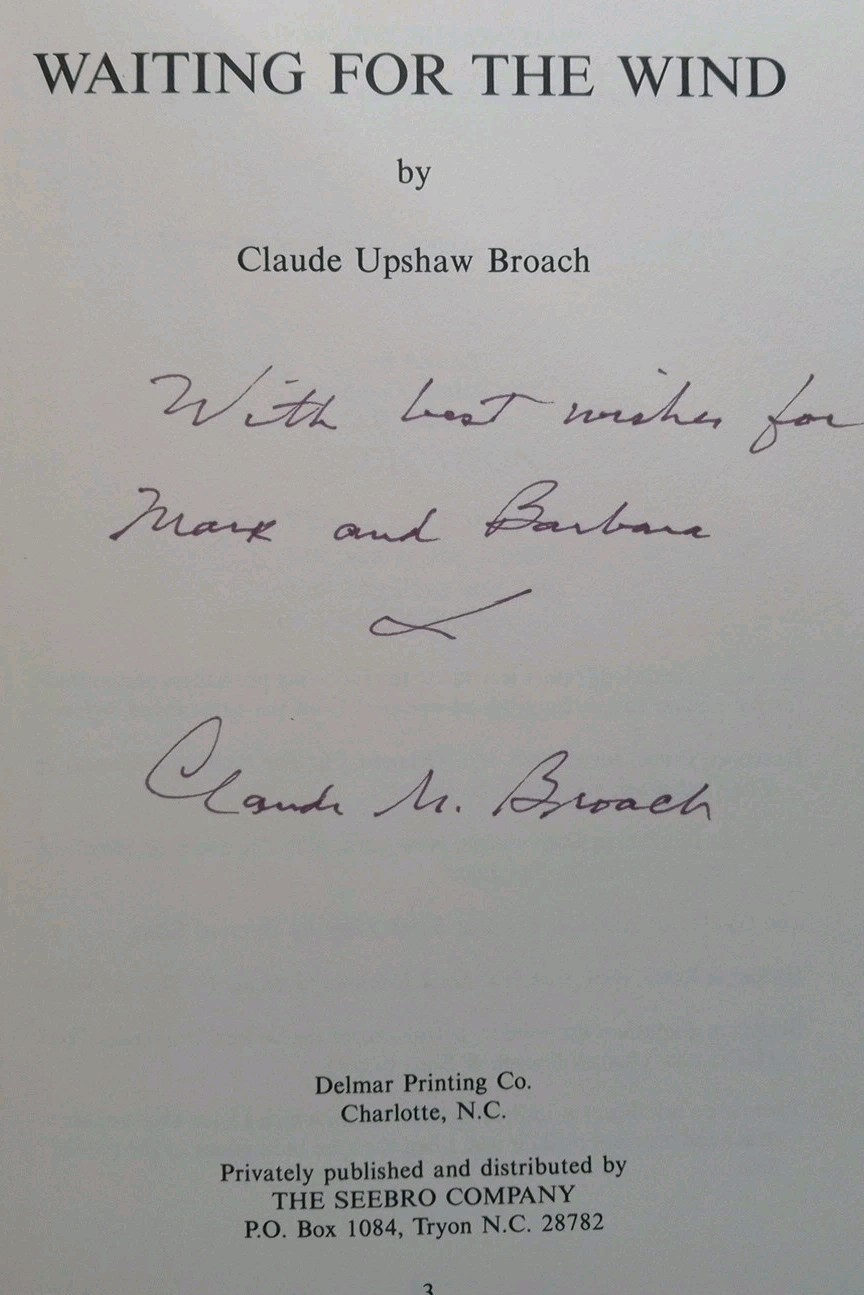 WAITING FOR THE WIND
by
Claude Upshaw Broach
With best wishes for
Mark and Barbara
Claude U. Broach
Delmar Printing Co.
Charlotte, N.C.
Privately published and distributed by
THE SEEBRO COMPANY
P.O. Box 1084, Tryon N.C. 28782
3